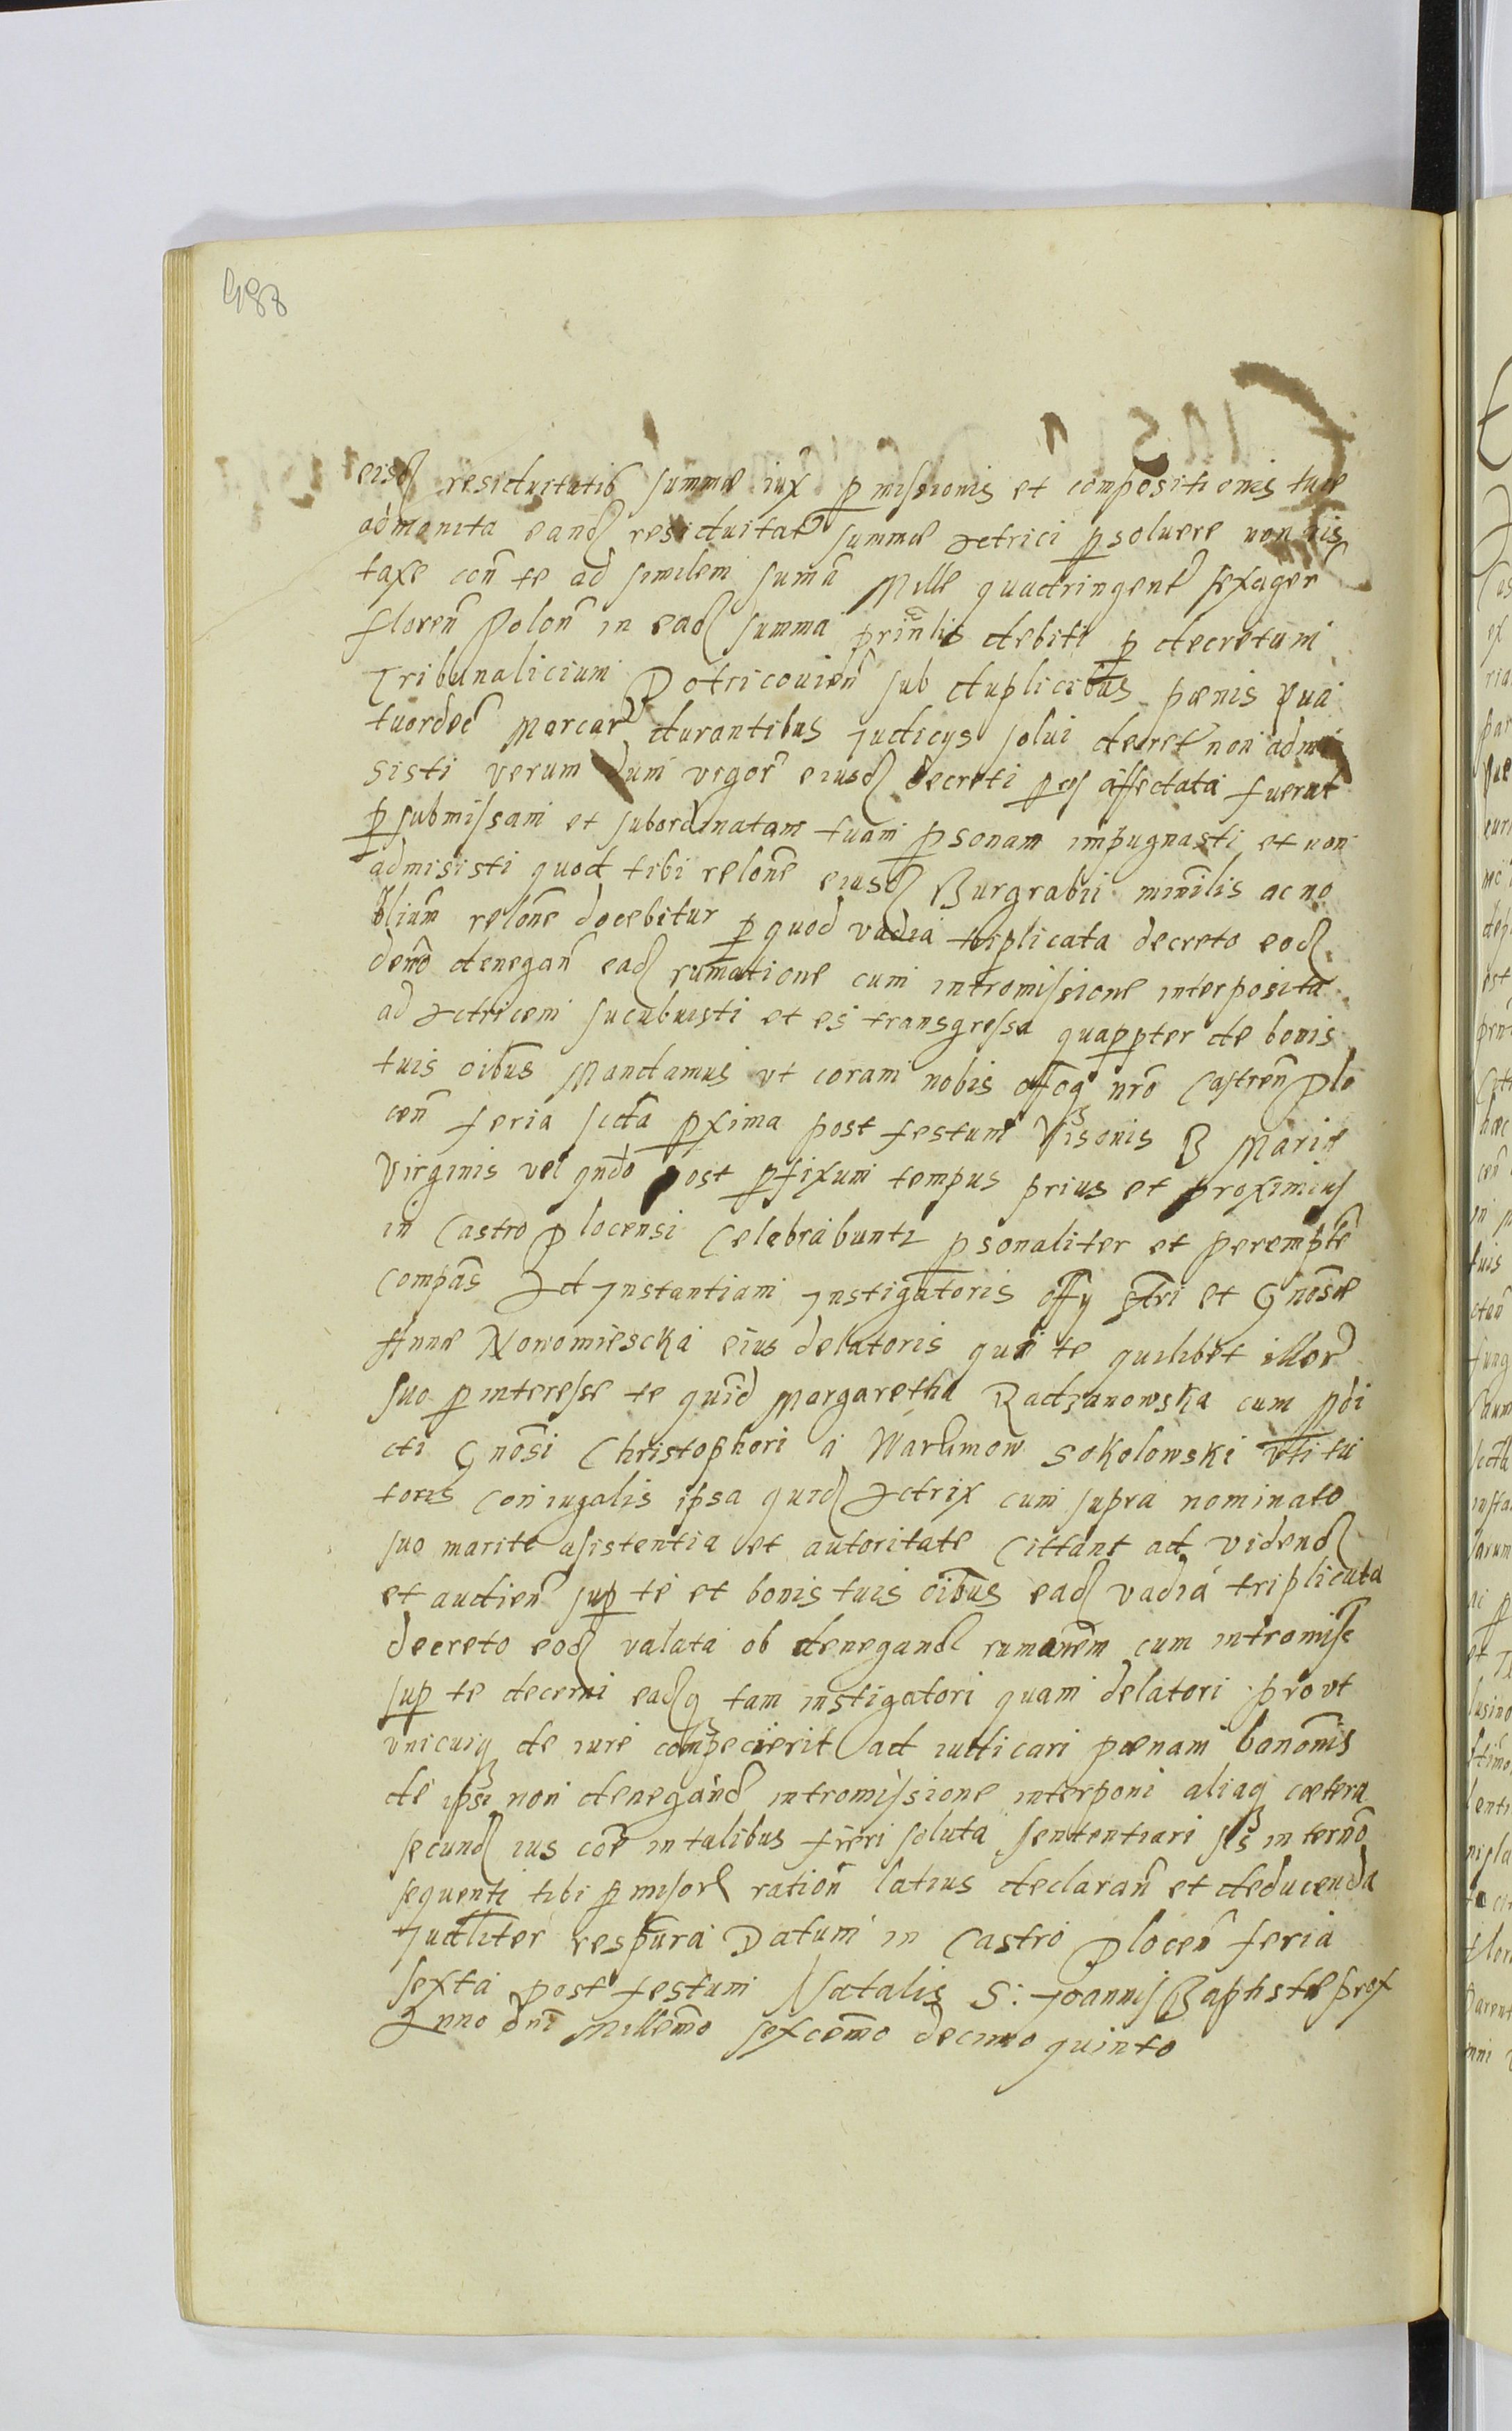 488
eisd residuitatis summæ iux pmissionis et compositionis tuæ
admonita eand residuitat summæ Actrici psoluere non vis
taxe con te ad similem sumā Mille quadringent sexagen
floren Polon in ead summa prinlis debiti p decretum
Tribunalicium Potricouien sub duplicibus pænis qua
tuordec Marcar durantibus Judicys solui decret non admi
sisti verum dum vigor eiusd decreti affectata fuerat
p submissam et subordinatam tuam psonam impugnasti et non
admisisti quod tibi relone eiusd Burgrabii minilis ac no
blium relone docebitur p quod vadia triplicata decreto eod
denegan ead rumatione cum intromissione interposita
ad Actricem sucubuisti et es transgressa quappter de bonis
tuis oibus Mandamus vt coram nobis offoq nro Castren Plo
cen feria scda pxima post festum Visonis B Mariæ
Virginis vel qndo post pfixum tempus prius et proximius
in Castro Plocensi Celebrabuntr psonaliter et perempte
compas Ad Instantiam Instigatoris offy nri et Gnosæ
Annæ Nowomiescka eius delatoris qui te quilibet illor
suo p interesse te quid Margaretha Radzanowska cum
cti Gnosi Christophori a Warzimow Sokolowski vti tu
toris coniugalis ipsa quid Actrix cum supra nominato
suo marite asistentia et autoritate Cittant ad vidend
et audien sup te et bonis tuis oibus ead vadia triplicata
decreto eod valata ob denegand rumanem cum intromiss
sup te decerni eadq tam instigatori quam delatori prout
vnicuiq de iure competierit adiudicari pænam banonis
de ipsi non denegand intromissione interponi aliaq cætera
secund ius coe in talibus fieri soluta sententiari in termo
sequenti tibi pmisor ration latius declaran et deducenda
Judliter respura Datum in Castro Plocen feria
sexta post festum Natalis S: Joannis Baptistæ prox
Anno dni Millemo sexcemo decimo quinto